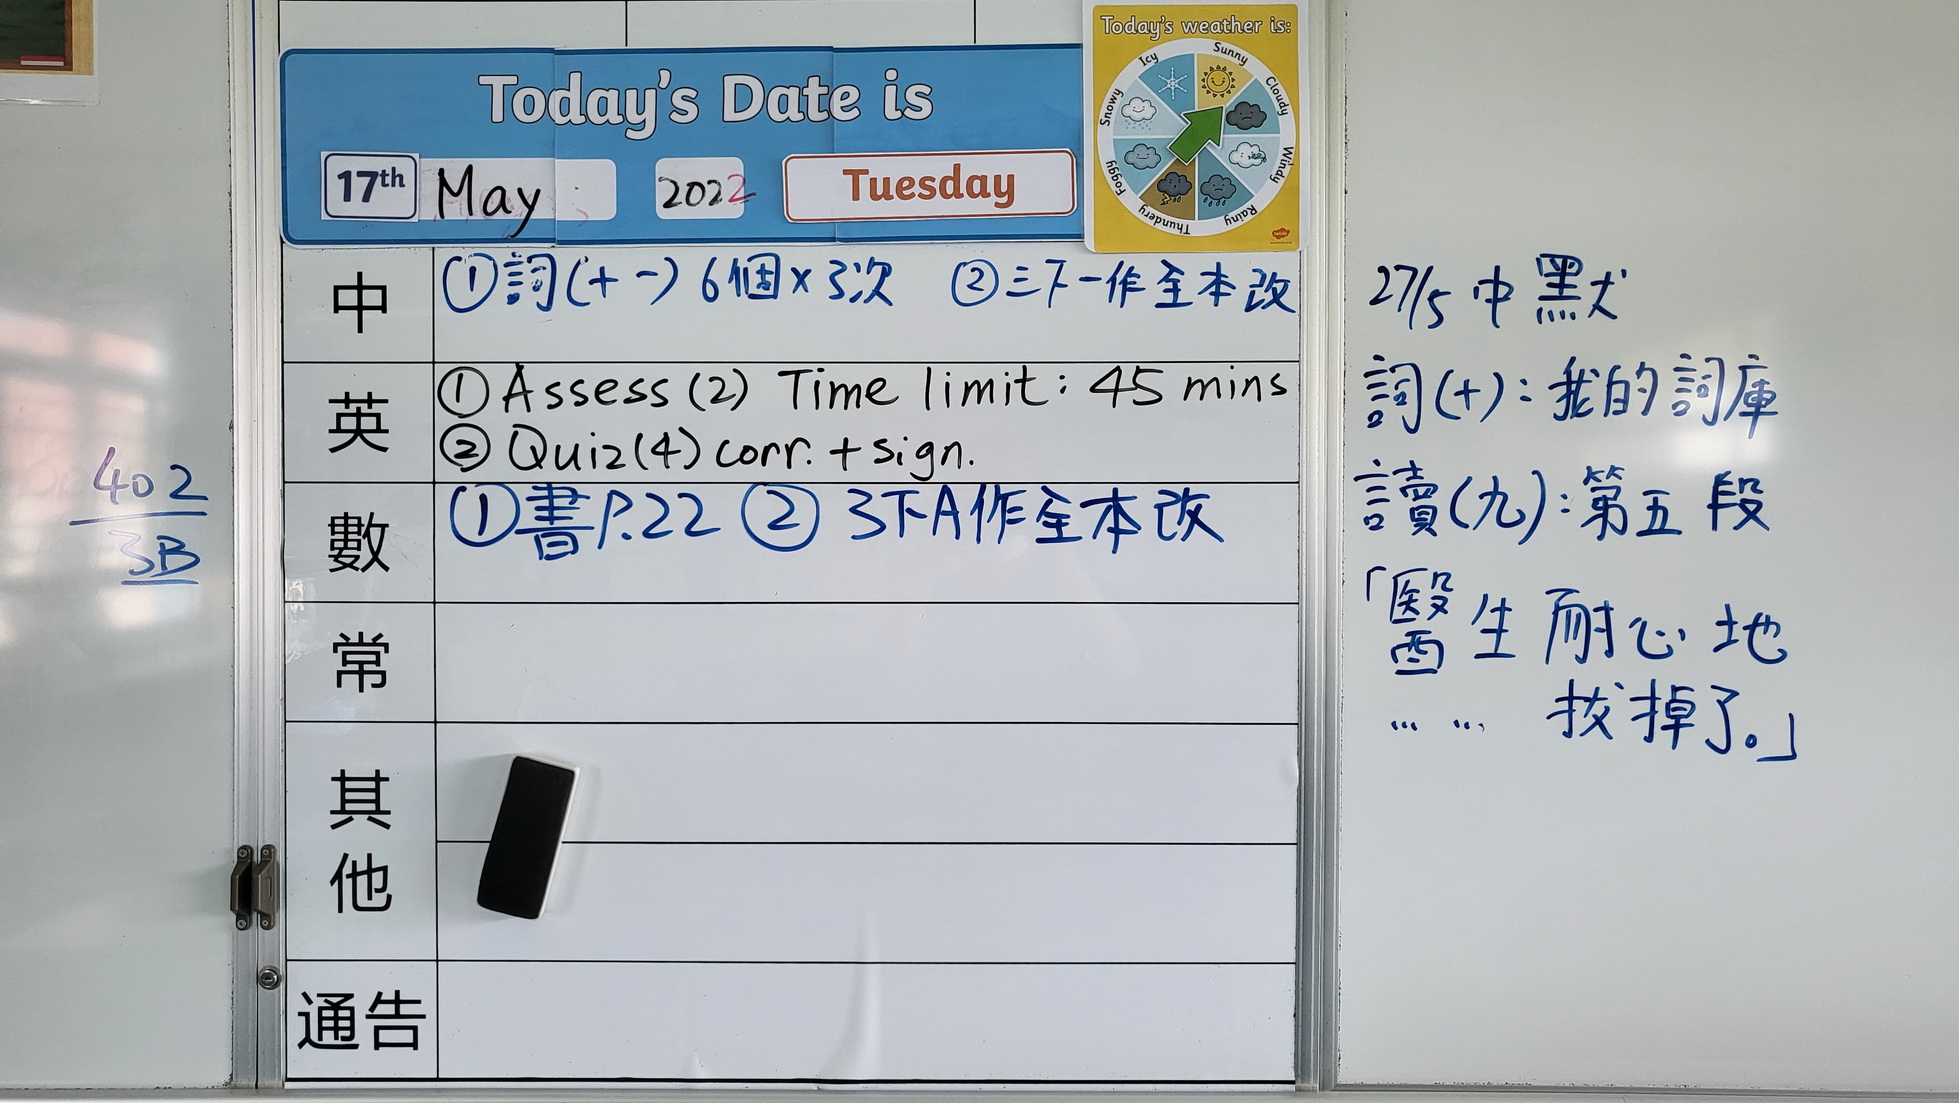 Today's Date is
17th May 2022 Tuesday
Today's weather is:
Icy
Sunny
Cloudy
Windy
Rainy
Thundery
Foggy
Snowy
中 ①詞(十一) 6個×3次 ②三下一作全本改
英 ① Assess (2) Time limit: 45 mins
② Quiz(4) corr. + sign.
數 ①書P.22 ② 3下A作全本改
常
其他
通告
402
3B
27/5 中默
詞(十):我的詞庫
讀(九):第五段
「醫生耐心地
…… 拔掉了。」